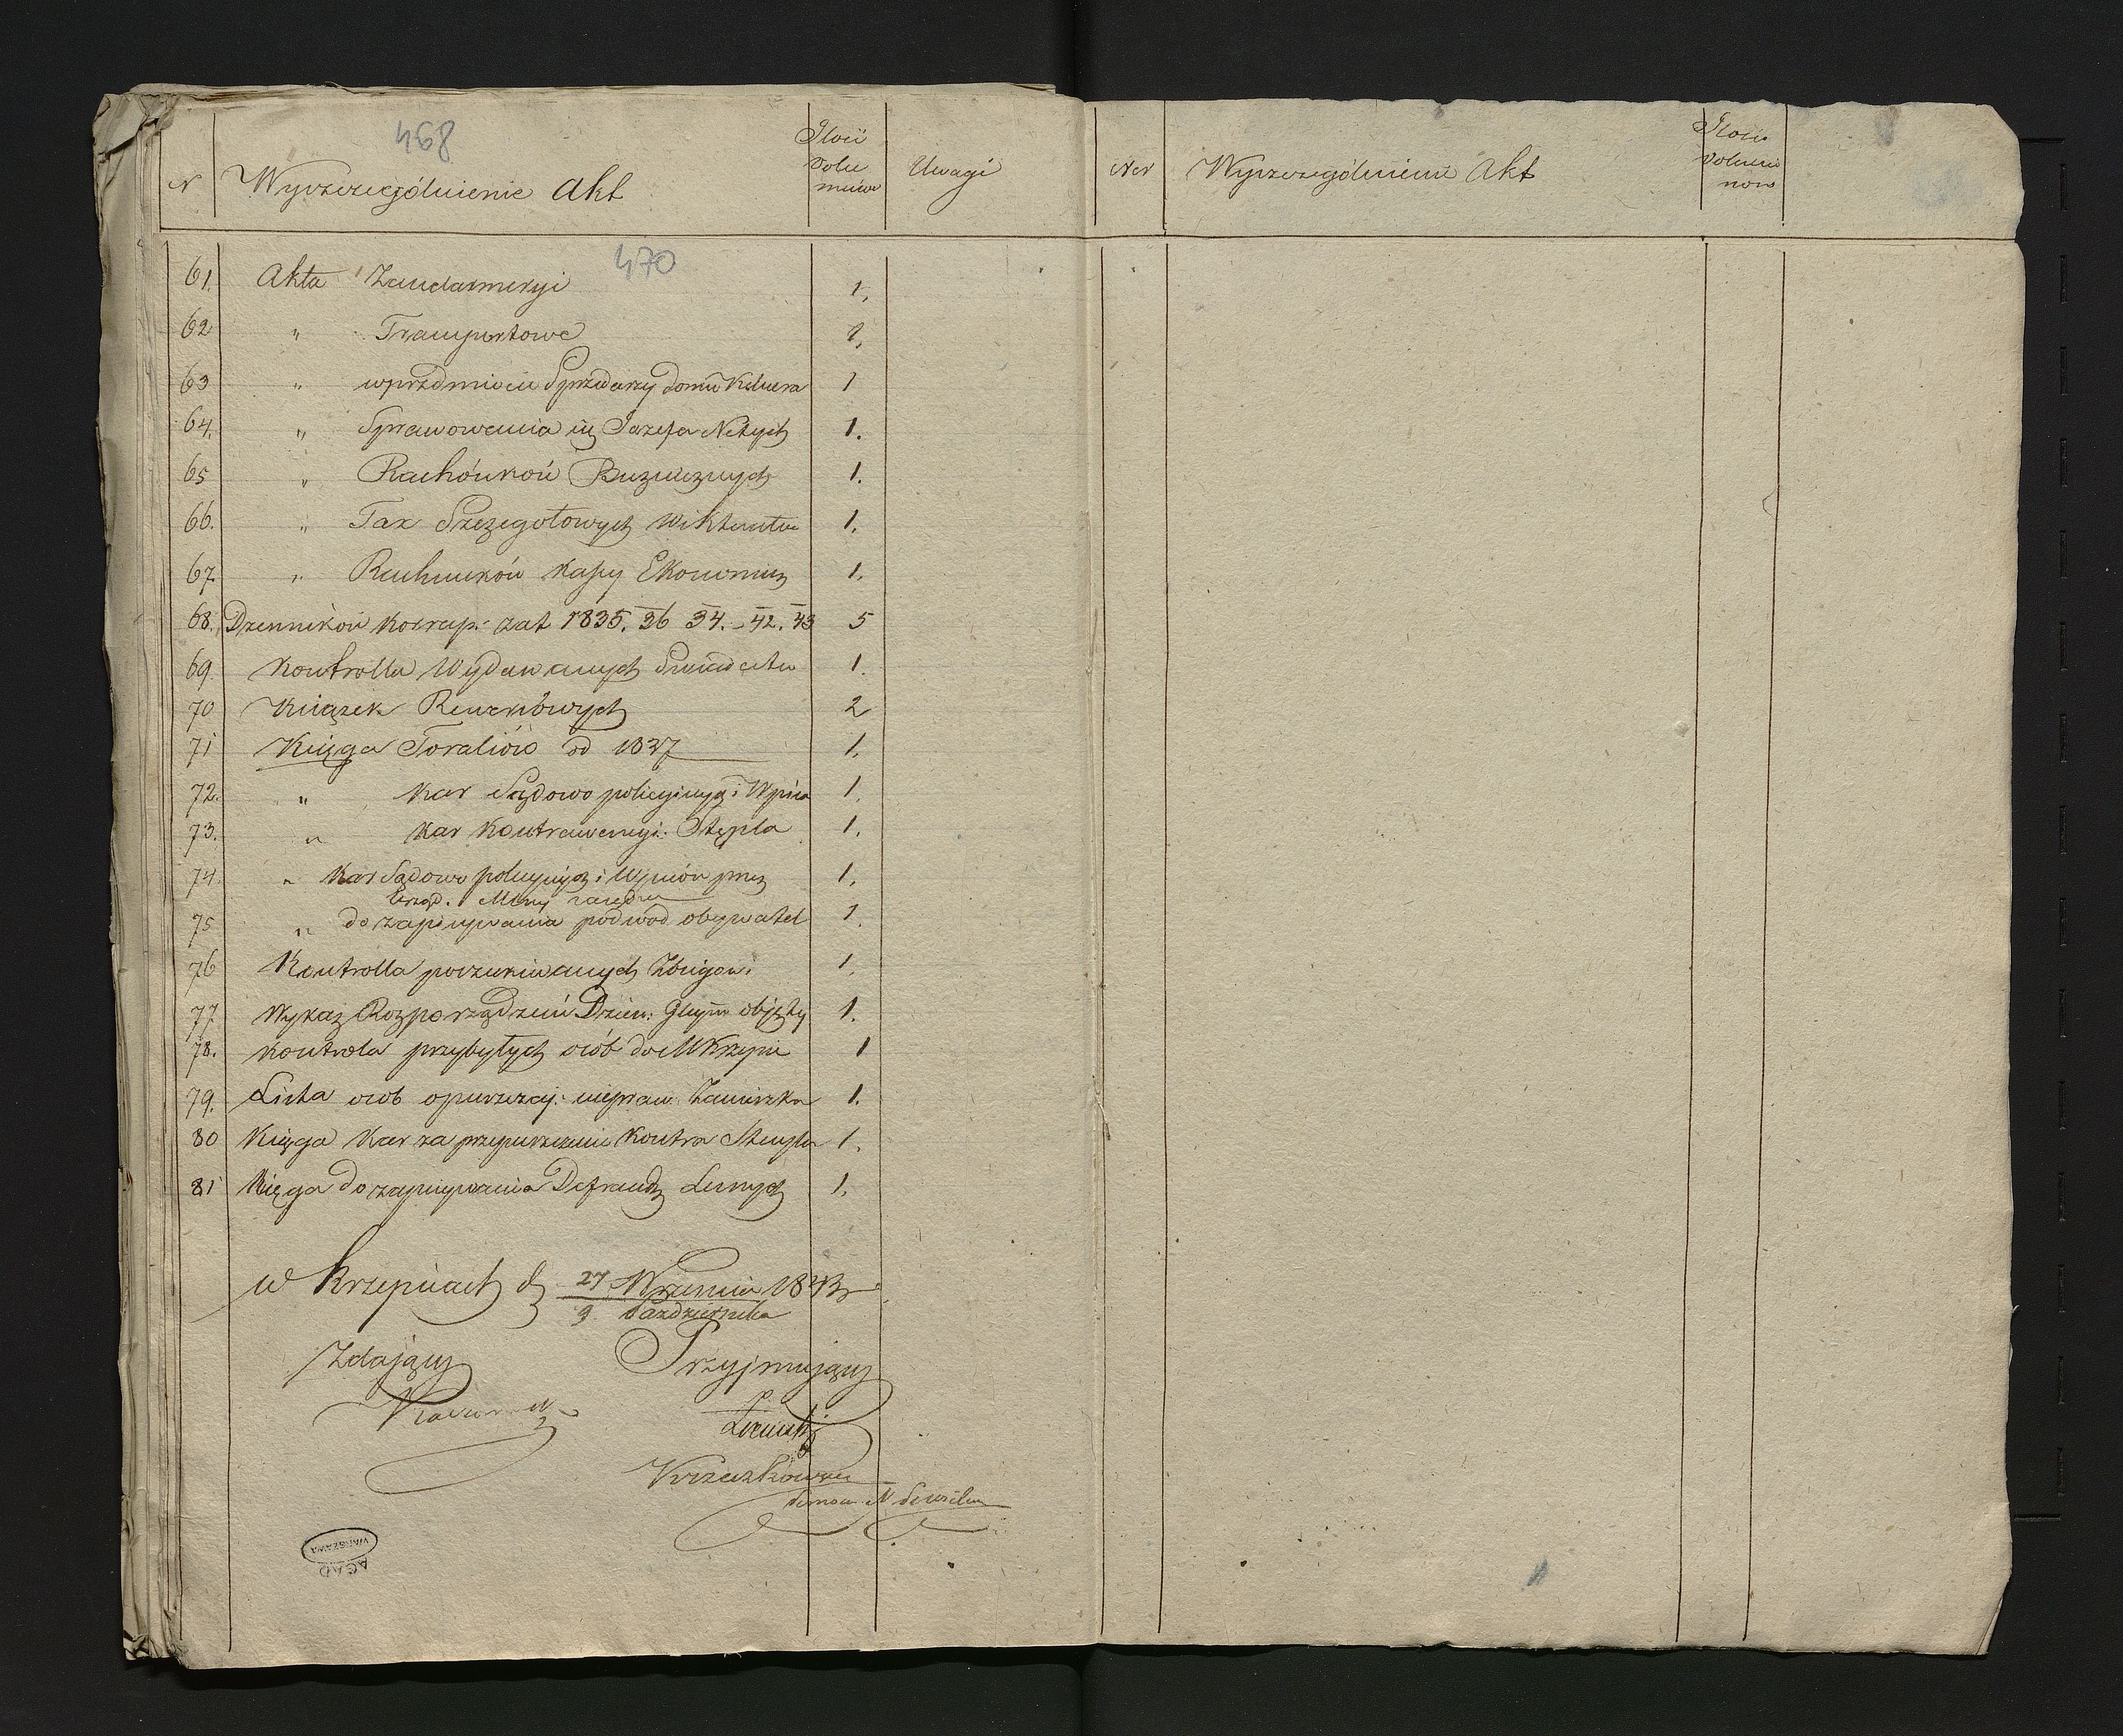 468
N Wyszczególnienie Akt Ilość Volu minów Uwagi
470
61. Akta Żandarmeryi 1.
62 " Transportowe 1.
63 " w przedmiocie Sprzedarzy domu 1
64. " Sprawowania się Józefa 1.
65 " Rachónków 1.
66. " Tax Szczegołowych Wiktuałów 1.
67. " Rachunków Kassy Ekonomicz 1.
68. Dzienników Korresp: za lat 1835. 36 34. - 42. 43 5
69. Kontrolla Wydawanych Świadectw 1.
70 Książek 2
71 Księga od 1837 1.
72. " Kar Sądowo policyjnych i 1.
73. " Kar Kontrawencyi Stępla 1.
74. " Kar Sądowo policyjnych i Wpisów przez 1.
Urząd.
75 " do zapisywania podwod obywatel 1.
76 Kontrolla poszukiwanych Zbiegów 1.
77. Wykaz Rozporządzeń Dzien: objęty 1.
78. Kontrola przybyłych osób do M Krzepic 1
79. Lista osob opuszczaj: Zamieszka 1.
80 Księga Kar za przepuszczenie Kontra Stempla 1.
81 Księga do zapisywania Defraudcy Lesnych 1.
w Krzepicach d 27 Września 1843 r
9 Października
Zdający Przyjmujący
ACAD
WARSZAWA
Ner Wyszczególnienie Akt Ilość Volumi now